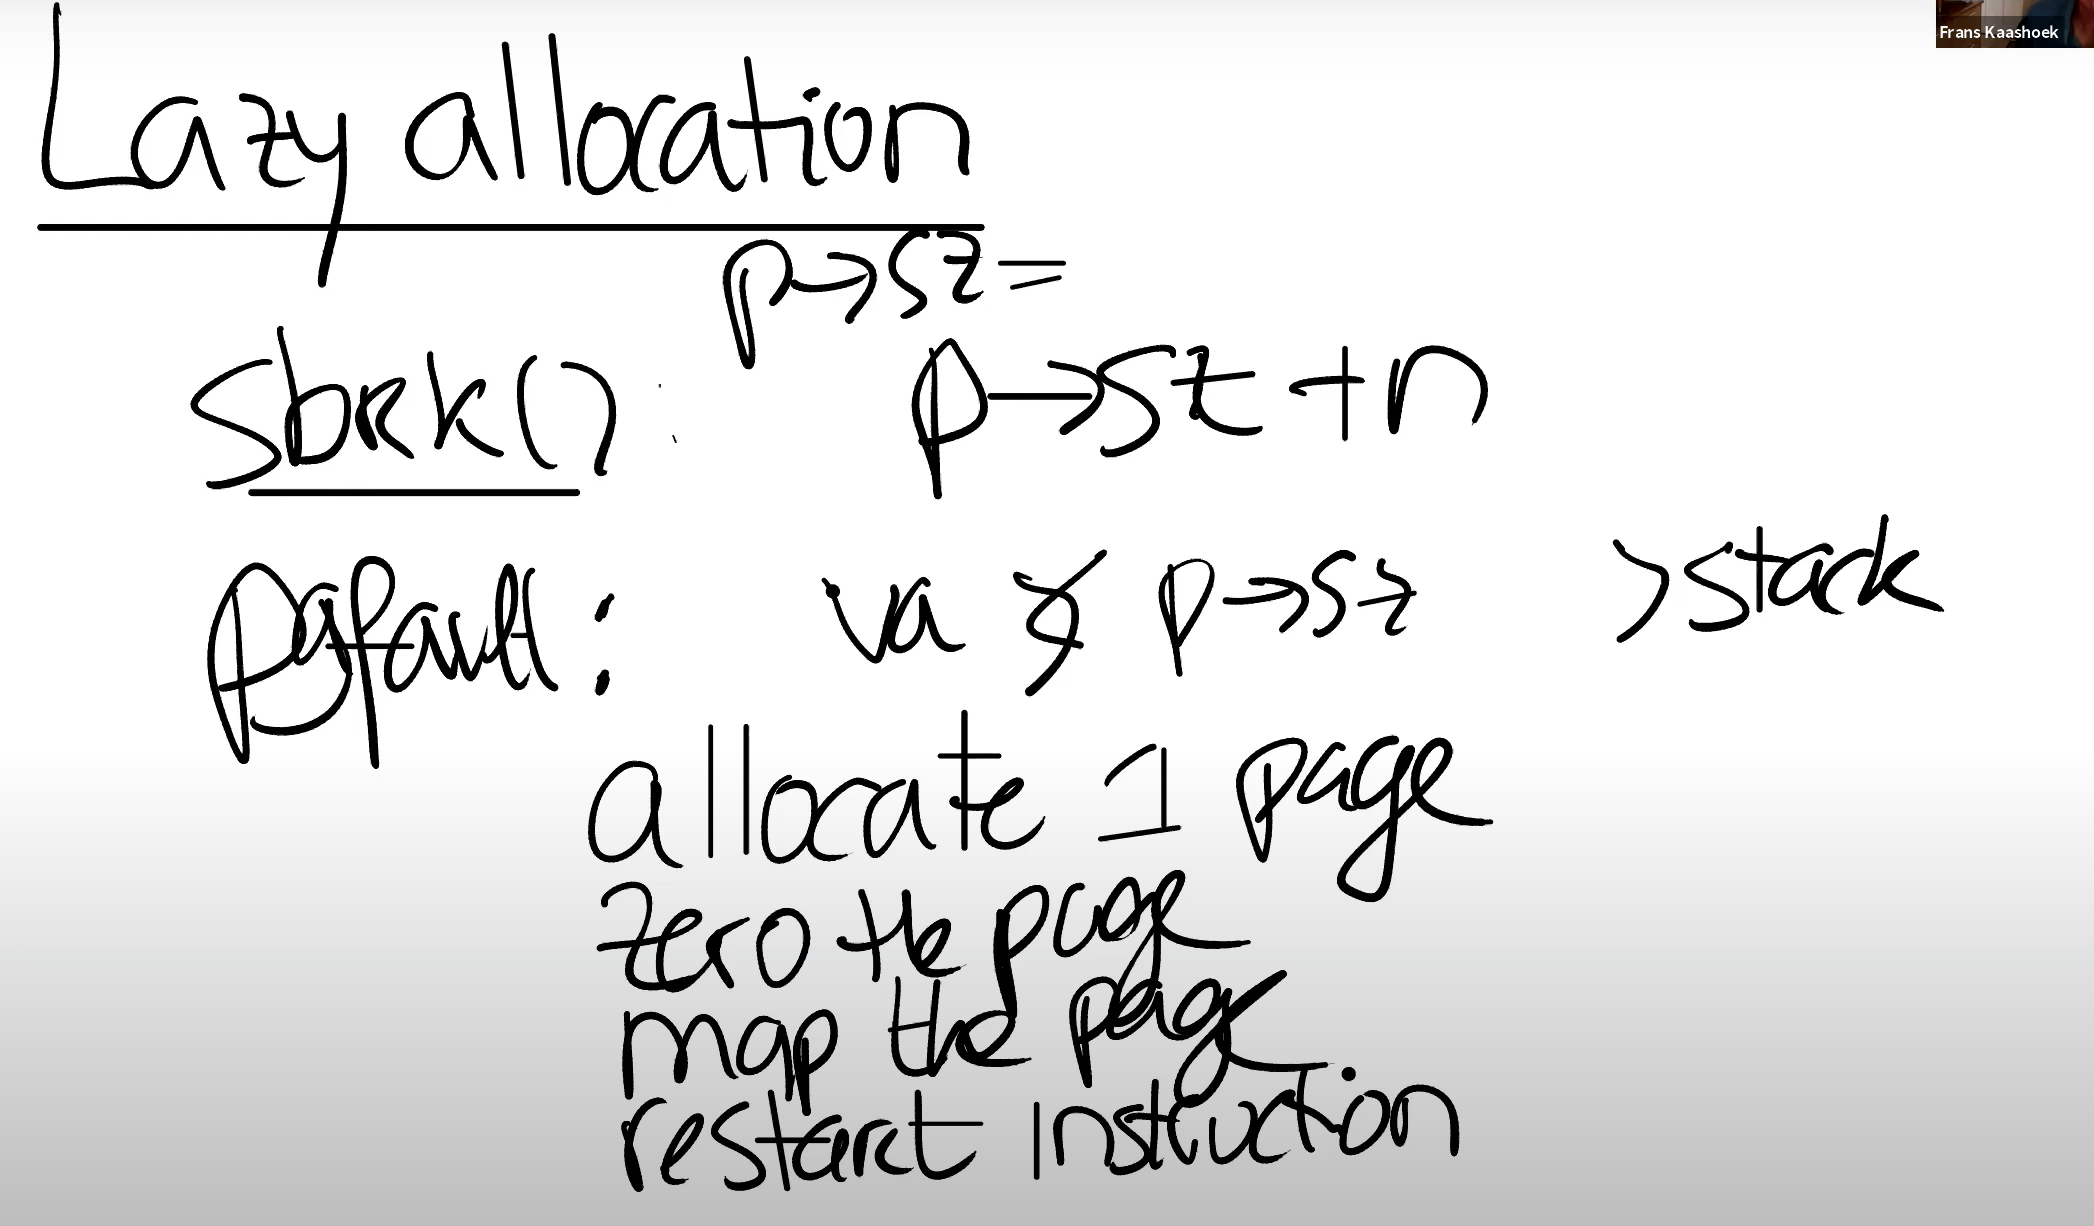 Frans Kaashoek
Lazy allocation
p→sz=
sbrk() p→sz+n
pgfault: va < p→sz >stack
allocate 1 page
zero the page
map the page
restart instruction